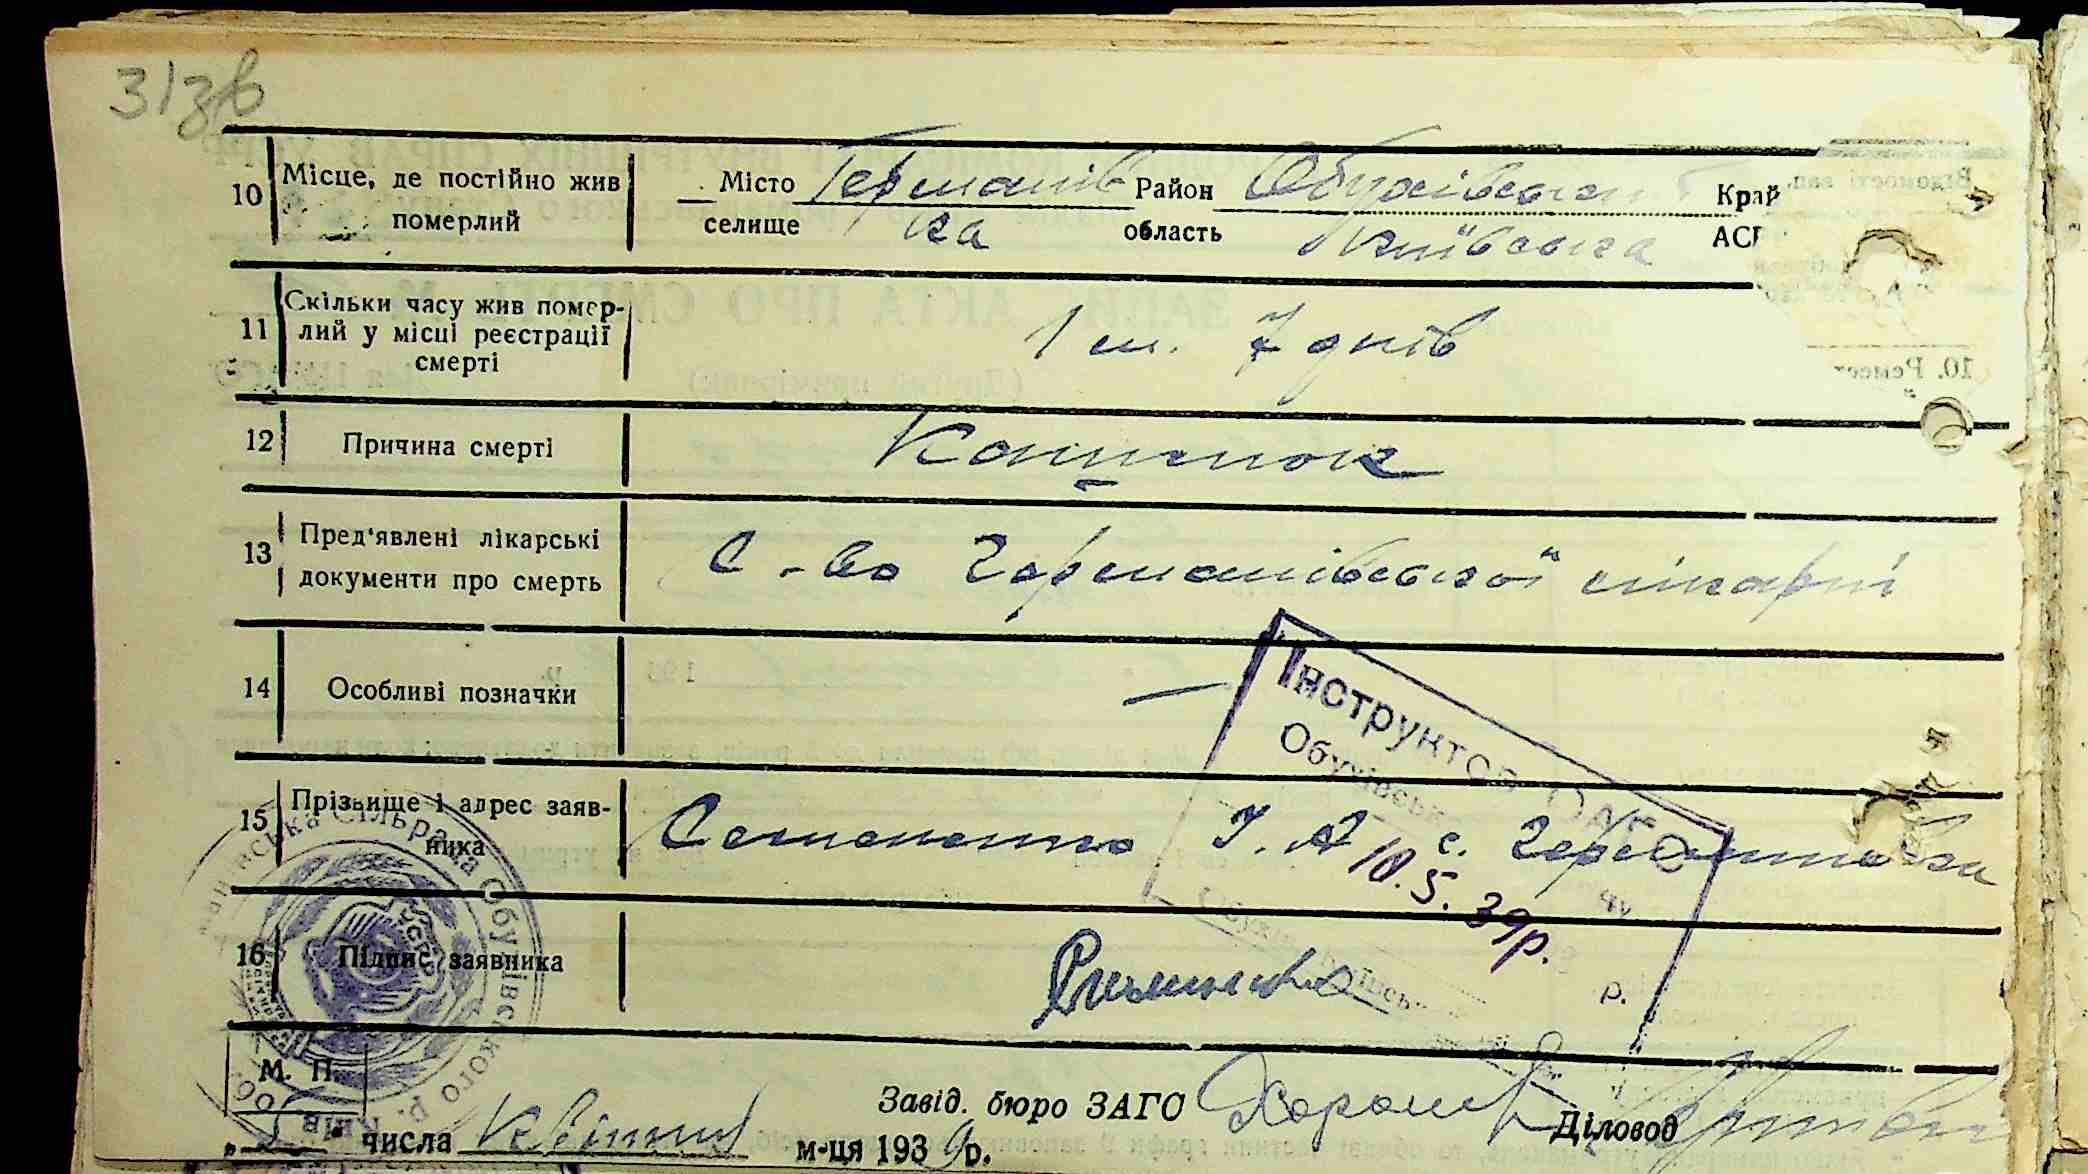 313в
10 Місце, де постійно жив померлий Місто селище Германівка Район Обухівський Край
область Київська АСР
11 Скільки часу жив помер-
лий у місці реєстрації
смерті
1 м. 7 днів
12 Причина смерті Кашлюк
13 Пред'явлені лікарські
документи про смерть
С-во Германівської лікарні
14 Особливі позначки —
Інструктор ЗАГС
Обухівськ
10.5.39р.
р.
15 Прізвище і адрес заяв-
ника
І. А с. Германівка
16 Підпис заявника
манівська Сільрада Обухівського р. Київ
УСРР
М. П.
Завід. бюро ЗАГС Діловод
" 5 " числа Квітня м-ця 1939р.